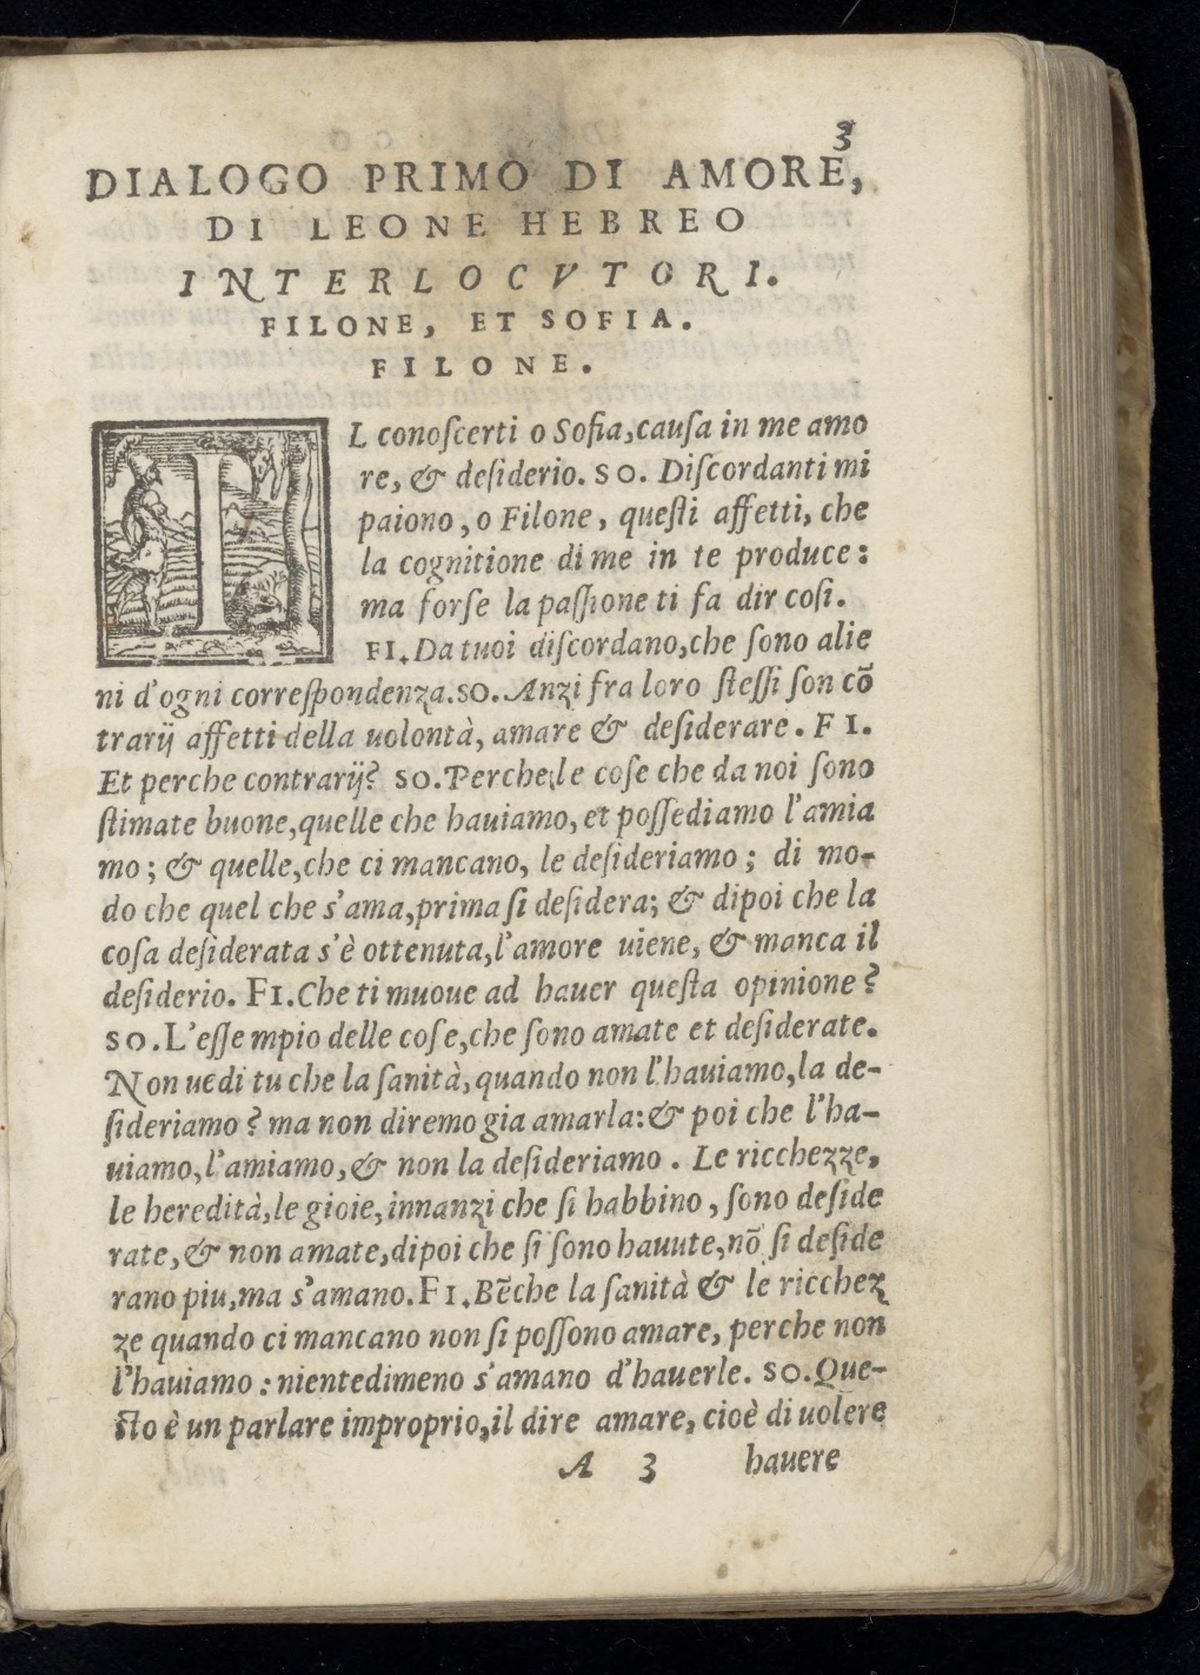 3
DIALOGO PRIMO DI AMORE,
DI LEONE HEBREO
INTERLOCVTORI.
FILONE, ET SOFIA.
FILONE.
IL conoſcerti o Sofia,cauſa in me amo
re, & deſiderio. SO. Diſcordanti mi
paiono, o Filone, queſti affetti, che
la cognitione di me in te produce:
ma forſe la paſſione ti fa dir coſi.
FI. Da tuoi diſcordano,che ſono alie
ni d'ogni correſpondenza.SO. Anzi fra loro ſteſſi ſon cõ
trarij affetti della uolontà, amare & deſiderare. FI.
Et perche contrarij? SO. Perche le coſe che da noi ſono
ſtimate buone,quelle che hauiamo, et poſſediamo l'amia
mo; & quelle,che ci mancano, le deſideriamo; di mo-
do che quel che s'ama,prima ſi deſidera; & dipoi che la
coſa deſiderata s'è ottenuta,l'amore uiene, & manca il
deſiderio. FI. Che ti muoue ad hauer queſta opinione?
SO. L'eſſempio delle coſe,che ſono amate et deſiderate.
Non uedi tu che la ſanità,quando non l'hauiamo,la de-
ſideriamo? ma non diremo gia amarla: & poi che l'ha-
uiamo,l'amiamo, & non la deſideriamo. Le ricchezze,
le heredità,le gioie,innanzi che ſi habbino, ſono deſide
rate, & non amate,dipoi che ſi ſono hauute,nõ ſi deſide
rano piu,ma s'amano. FI. Bẽche la ſanità & le ricchez
ze quando ci mancano non ſi poſſono amare, perche non
l'hauiamo: nientedimeno s'amano d'hauerle. SO. Que-
ſto è un parlare improprio,il dire amare, cioè di uolere
A 3 hauere